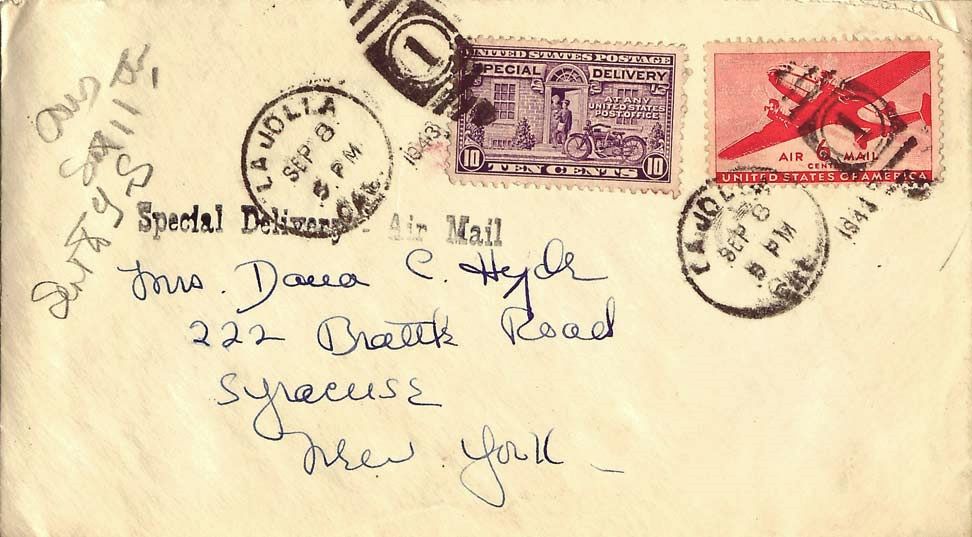 1
LA JOLLA
SEP 8
5 PM
CAL.
1943
UNITED STATES POSTAGE
SPECIAL DELIVERY
AT ANY
UNITED STATES
POST OFFICE
10 10
TEN CENTS
1
AIR 6 MAIL
CENTS
UNITED STATES OF AMERICA
LA JOLLA
SEP 8
5 PM
CAL.
1943
Special Delivery - Air Mail
Mrs. Dana C. Hyde
222 Brattle Road
Syracuse
New York
Ans